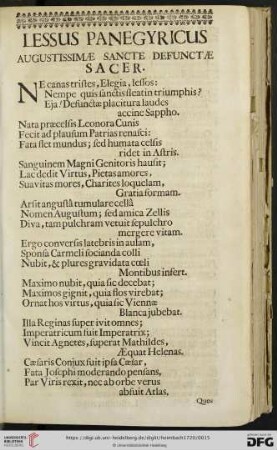 LESSUS PANEGYRICUS
AUGUSTISSIMÆ SANCTE DEFUNCTÆ
SACER.
NE canas tristes, Elegia, lessos:
Nempe quis sanctis fleat in triumphis?
Eja! Defunctæ placitura laudes
accine Sappho.
Nata præcelsis Leonora Cunis
Fecit ad plausum Patrias renasci:
Fata flet mundus; sed humata celsis
ridet in Astris.
Sanguinem Magni Genitoris hausit;
Lac dedit Virtus, Pietas amores,
Suavitas mores, Charites loquelam,
Gratia formam.
Arsit angustâ tumulare cellâ
Nomen Augustum; sed amica Zellis
Diva, tam pulchram vetuit sepulchro
mergere vitam.
Ergo conversis latebris in aulam,
Sponsa Carmeli socianda colli
Nubit, & plures gravidata cœli
Montibus infert.
Maximo nubit, quia sic decebat;
Maximos gignit, quia flos virebat;
Ornat hos virtus, quia sic Viennæ
Blanca jubebat.
Illa Reginas super ivit omnes;
Imperatricum fuit Imperatrix;
Vincit Agnetes, superat Mathildes,
Æquat Helenas.
Cæsaris Conjux fuit ipsa Cæsar,
Fata Josephi moderando pensans,
Par Viris rexit, nec ab orbe verus
abfuit Atlas.
Quos
UNIVERSITÄTS-
BIBLIOTHEK
HEIDELBERG
https://digi.ub.uni-heidelberg.de/diglit/hornbach1720/0015
© Universitätsbibliothek Heidelberg
gefördert durch die
DFG